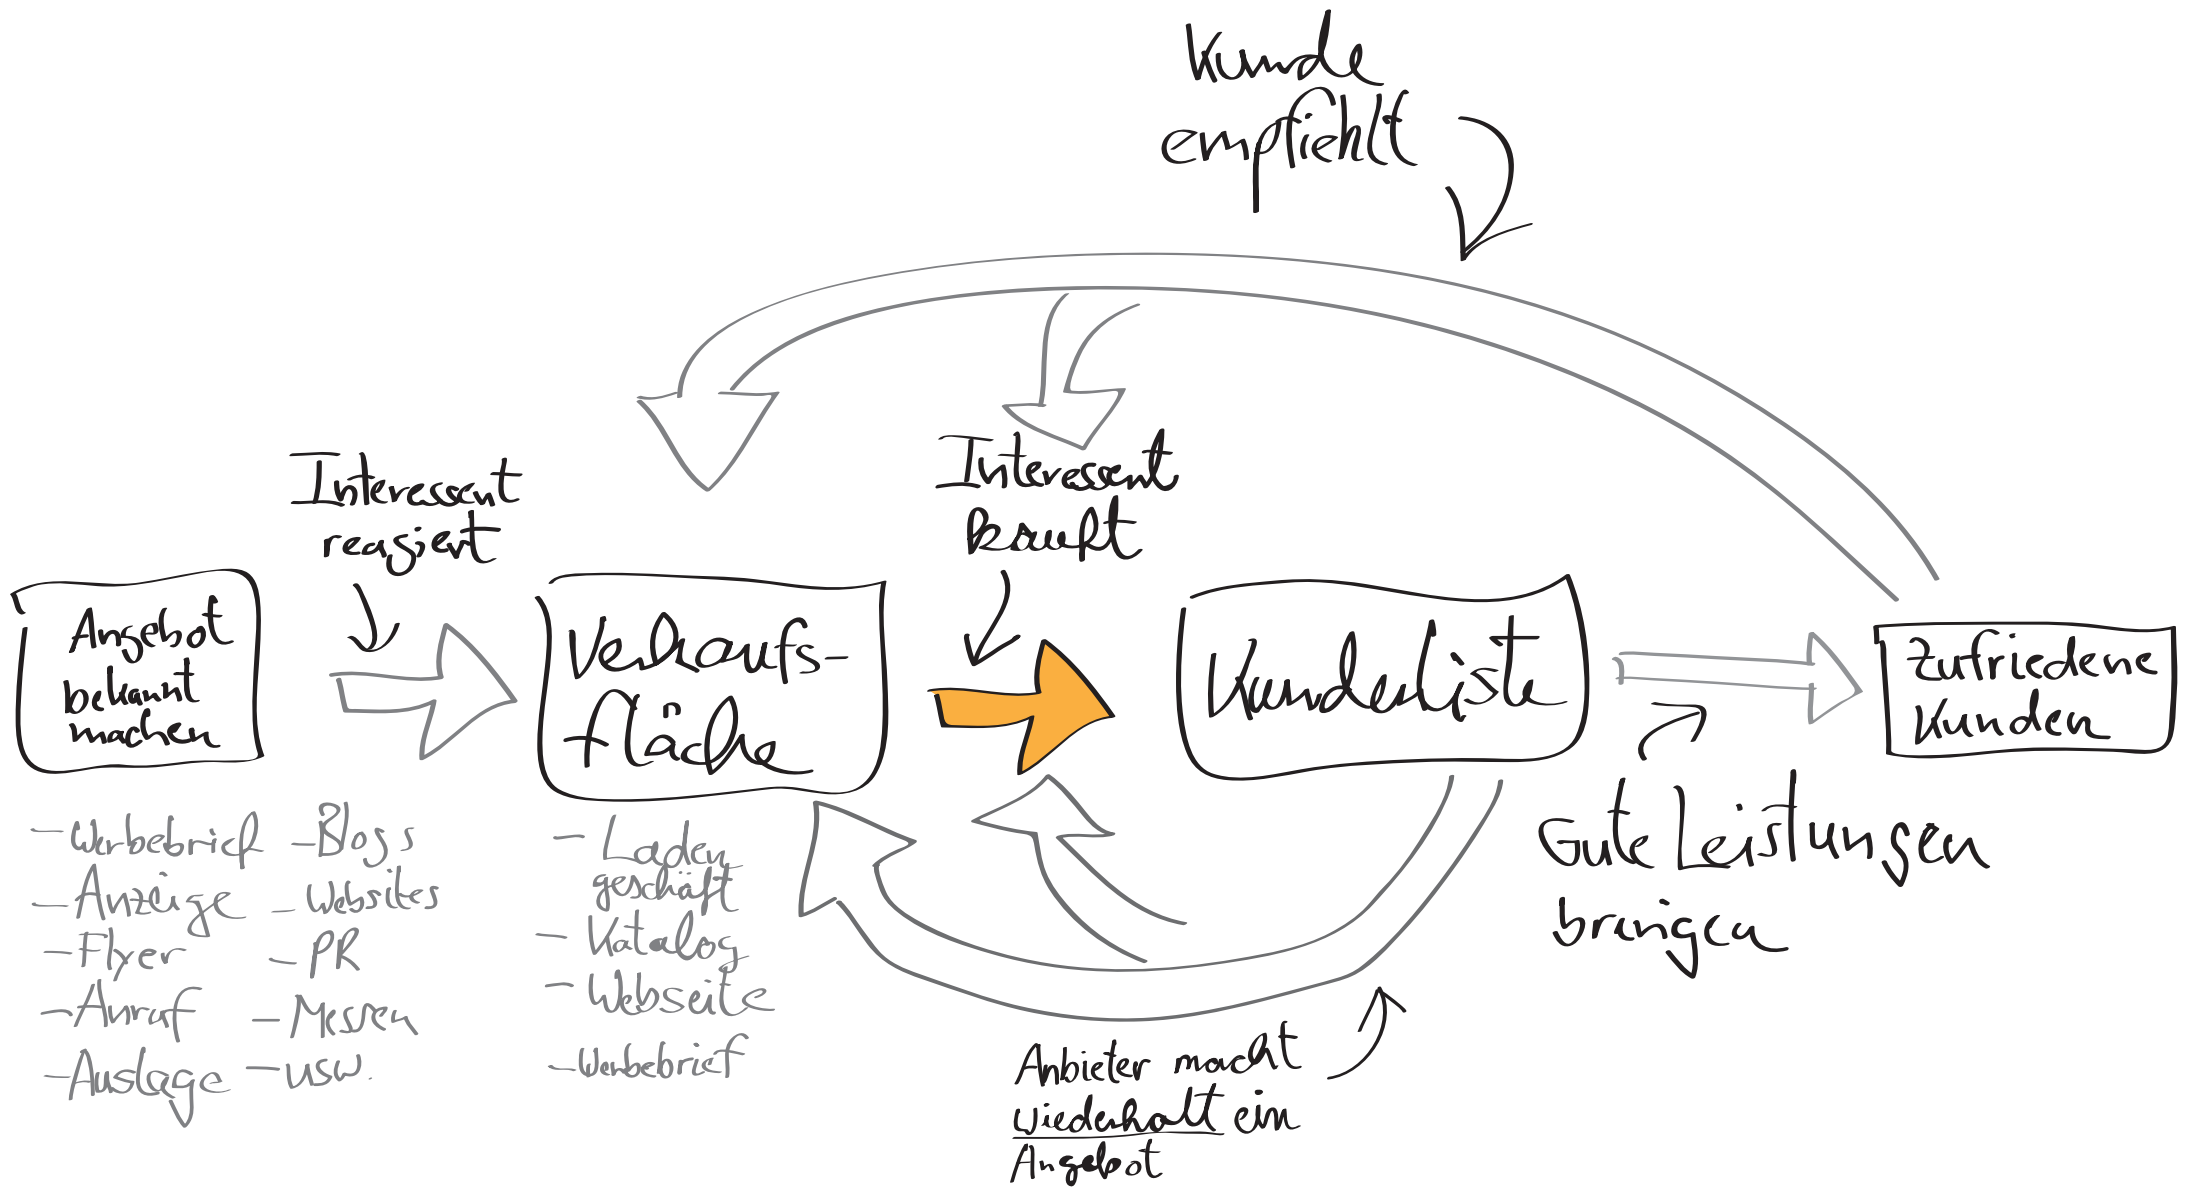 Kunde
empfiehlt
Interessent
reagiert
Interessent
kauft
Angebot
bekannt
machen
Verkaufs-
fläche
Kundenliste
Zufriedene
Kunden
- Werbebrief
- Anzeige
- Flyer
- Anruf
- Auslage
- Blogs
- Websites
- PR
- Messen
- usw.
- Laden
geschäft
- Katalog
- Webseite
- Werbebrief
Gute Leistungen
bringen
Anbieter macht
wiederholt ein
Angebot